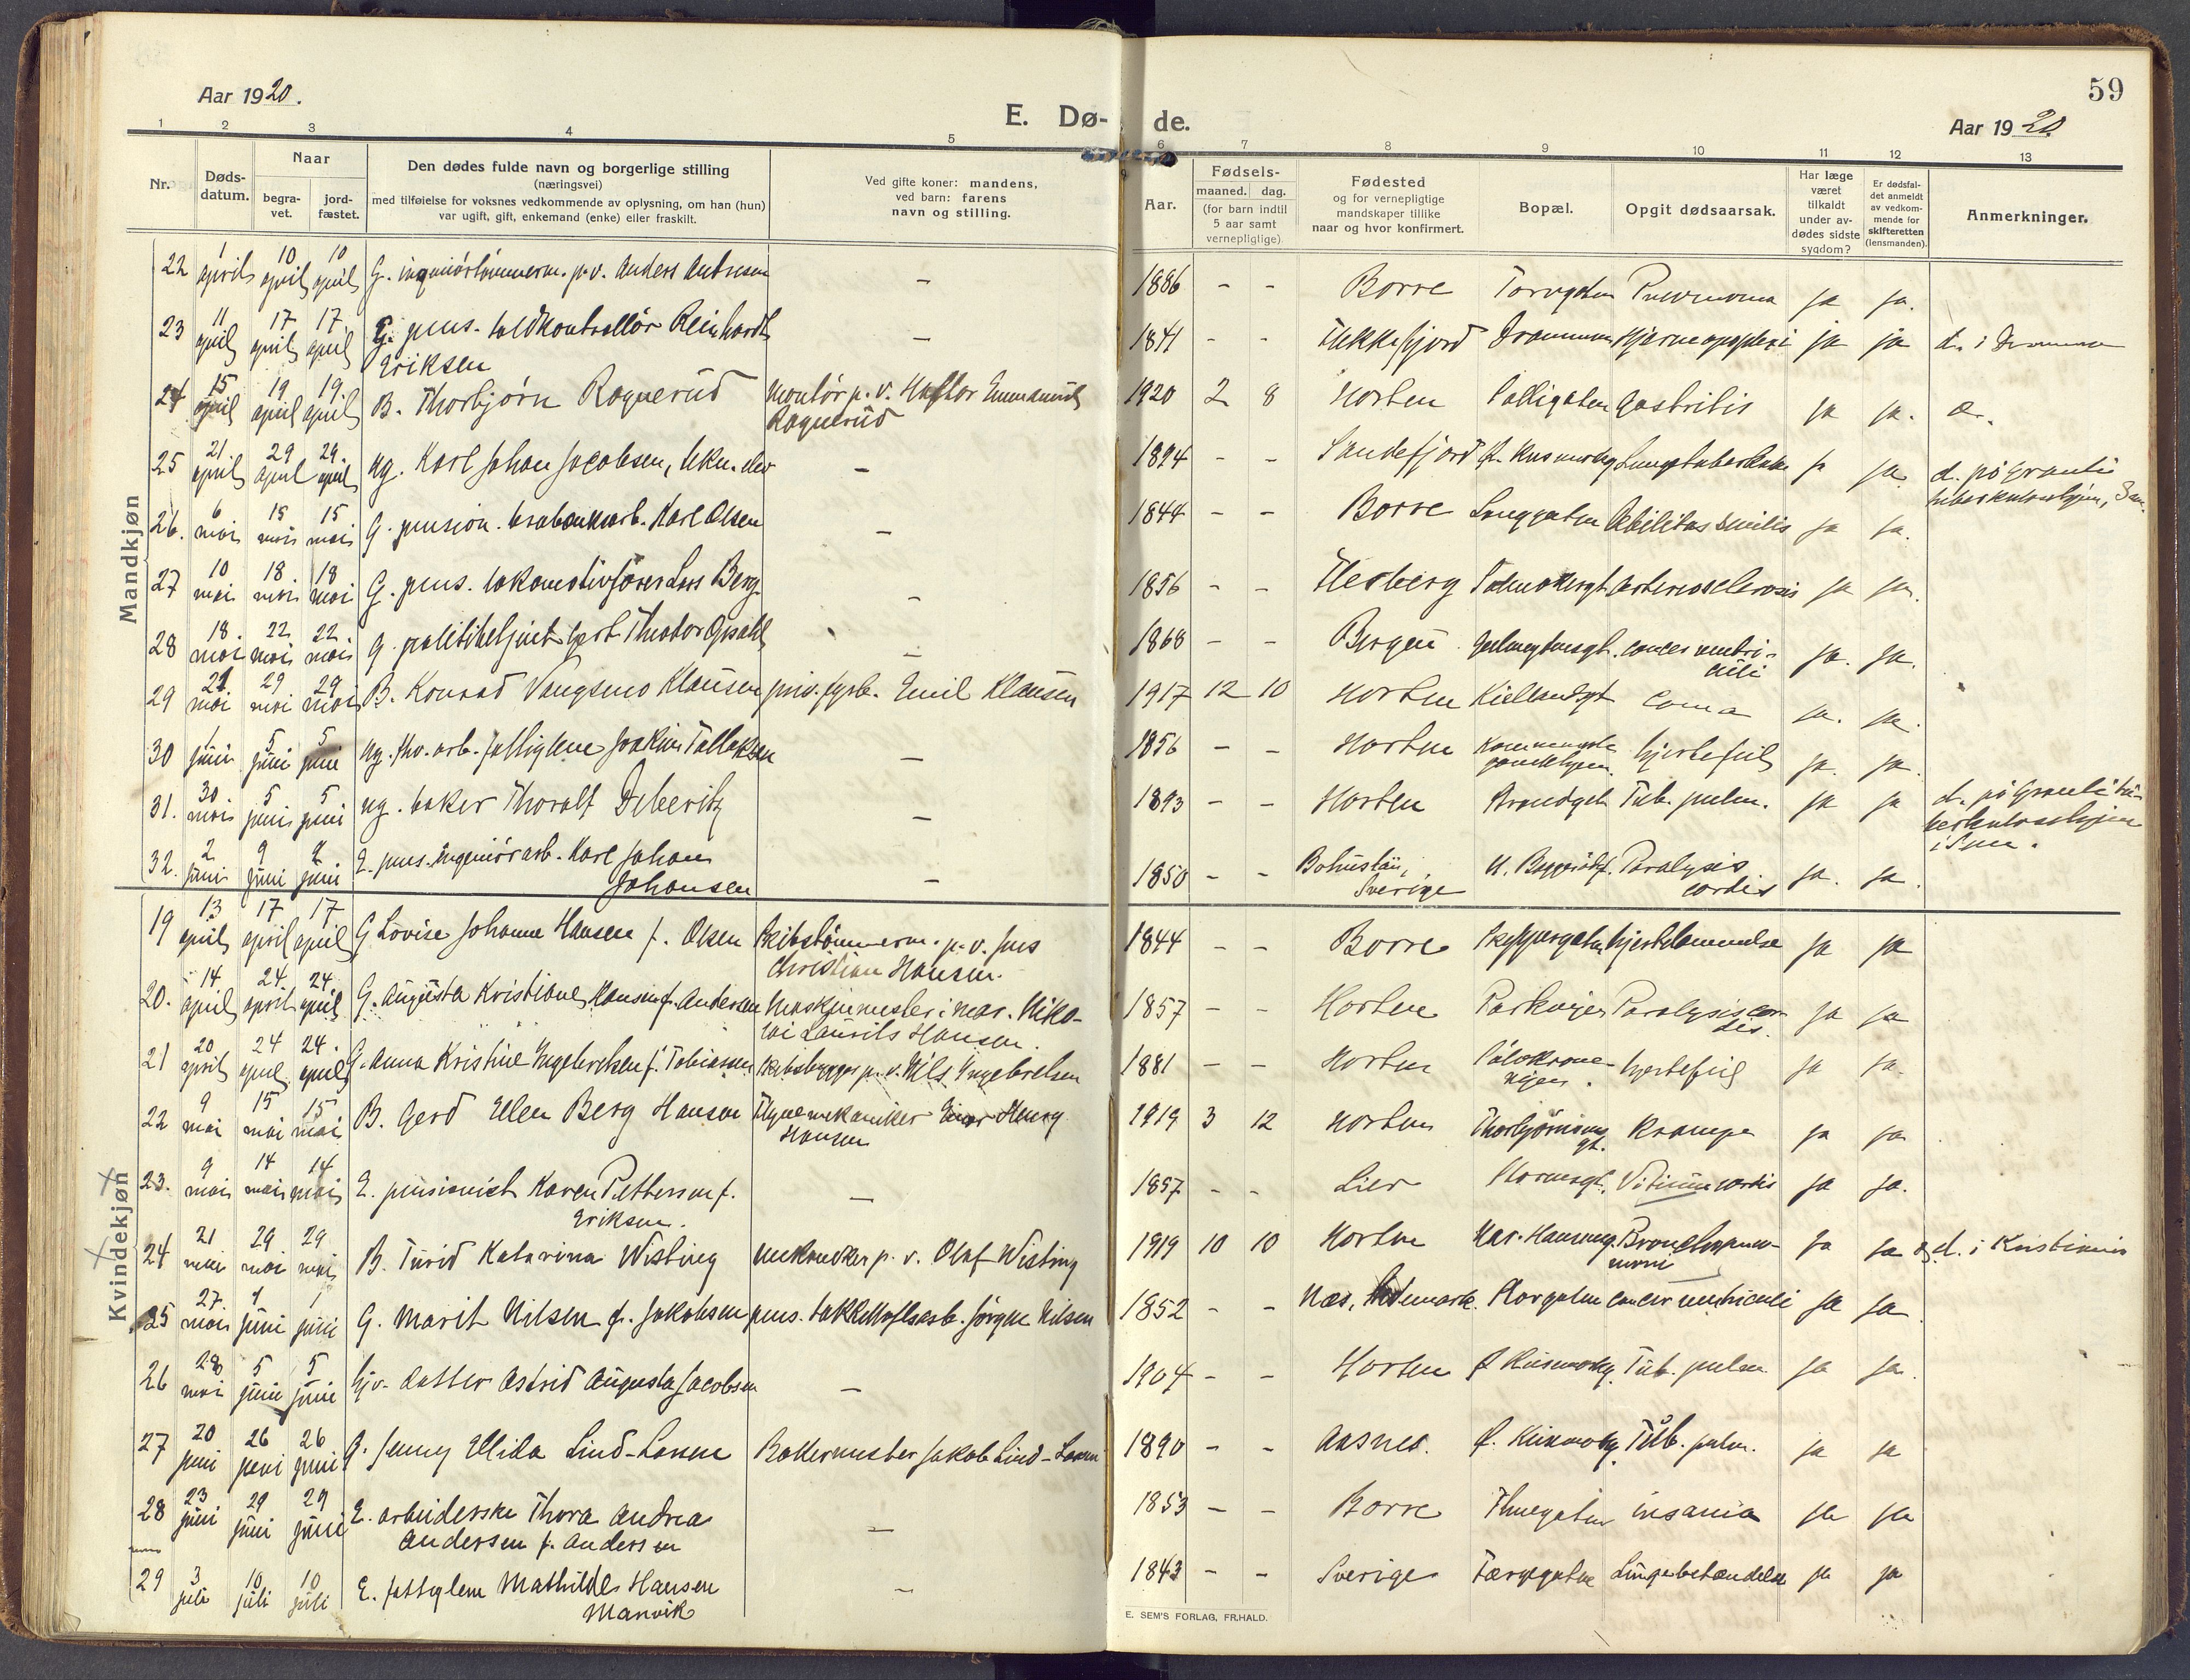 59
Aar 1920.
E. Dø- de.
Aar 1920.
1 2 3 4 5 6 7 8 9 10 11 12 13
Nr.
Døds-
datum.
Naar
begra-
vet.
jord-
fæstet.
Den dødes fulde navn og borgerlige stilling
(næringsvei)
med tilføielse for voksnes vedkommende av oplysning, om han (hun)
var ugift, gift, enkemand (enke) eller fraskilt.
Ved gifte koner: mandens,
ved barn: farens
navn og stilling.
Aar.
Fødsels-
maaned. dag.
(for barn indtil
5 aar samt
vernepligtige)
Fødested
og for vernepligtige
mandskaper tillike
naar og hvor konfirmert.
Bopæl.
Opgit dødsaarsak.
Har læge
været
tilkaldt
under av-
dødes sidste
sygdom?
Er dødsfal-
det anmeldt
av vedkom-
mende for
skifteretten
(lensmanden).
Anmerkninger.
Mandkjøn
22 1 april 10 april 10 april G. p.v. Anders — 1886 - - Borre ja ja.
23 11 april 17 april 17 april G. pens. toldkontrollør Reinhardt — 1841 - - Flekkefjord Drammen Hjerneapoplexi ja ja d. i Drammen
Eriksen
24 15 april 19 april 19 april B. Thorbjørn Rognerud Montør p.v. 1920 2 8 Horten Gastritis ja ja.
Rognerud
25 21 april 29 april 29. april ug. Karl Johan Jacobsen, — 1894 - - Sandefjord Lungetuberkulose ja ja d. på Granli
tuberkulosehjem,
26. 6 mai 15 mai 15 mai G. pension. Karl Olsen — 1844 - - Borre Langgaten Debilitas senilis ja ja.
27 10 mai 18 mai 18 mai G. pens. lokomotivfører Lars Berg — 1856 - - Flesberg arteriosclerosis ja ja.
28 18. mai 22 mai 22. mai G. politibetjent — 1868 - - Bergen cancer ventri- ja. ja.
culi
29 21. mai 29 mai 29 mai B. Konrad Vangsmo Klausen Emil Klausen 1917 12 10 Horten Kiellandsgt Coma ja. ja.
30 1 juni 5 juni 5 juni ug. Joakim Tallaksen — 1856 - - Horten Kommunale hjertefeil ja. ja.
gamlehjem.
31. 30 mai 5 juni 5 juni ug. baker Thoralf Deberitz — 1893 - - Horten Tub. pulm. ja ja d. på Granli tu-
berkulosehjem
32. 2 juni 9 juni 9 juni E. pens. ingeniørarb. Karl Johan — 1850 - - Bohuslän, Paralysis ja. ja.
Johansen Sverige cordis
Kvindekjøn
19 13 april 17 april 17 april G Lovise Johanne Hansen f. Olsen Skibstømmerm. p.v. Jens 1844 - - Borre Skippergaten hjertelammelse ja ja
Christian Hansen.
20. 14 april 24 april 24. april G. Augusta Kristiane Hansen f. Andersen Maskinmester i mar. Niko- 1857 - - Horten Parkveien Paralysis cor- ja ja
lai Laurits Hansen. dis.
21 20 april 24 april 24. april G. Anna Kristine Ingebretsen f. Tobiassen Skibsbygger p.v. Nils Ingebretsen 1881 - - Horten hjertefeil ja ja.
22 9 mai 15 mai 15 mai B. Gerd Ellen Berg Hansen Flyvemekaniker Einar Henry 1919 3 12 Horten Krampe ja ja
Hansen
23. 9 mai 14 mai 14 mai E. pensionist Karen Pettersen f. — 1857 - - Lier Vitium cordis ja ja.
Eriksen.
24 21 mai 29 mai 29 mai B. Turid Katarina Wisting mekaniker p.v. Olaf Wisting 1919 10 10 Horten Bronchopneu- ja ja d. i Kristiania
moni
25 27. mai 1 juni 1 juni G. Marit Nilsen f. Jakobsen pens. Jørgen Nilsen 1852 - - Næs, Hedemark. Storgaten cancer ventriculi ja ja.
26 28 mai 5 juni 5 juni hjv. datter Astrid Augusta Jacobsen — 1904 - - Horten Tub. pulm ja ja.
27 20 juni 26 juni 26 juni G. Jenny Elida Lind-Larsen Bakermester Jakob Lind-Larsen 1890 - - Aasnes. Tub. pulm. ja ja
28 23 juni 29 juni 29 juni E. arbeiderske Thora Andrea — 1853 - - Borre insania ja ja
Andersen f. Andersen
29 3 juli 10 juli 10 juli E. fattiglem Mathilde Hansen — 1843 - - Sverige Lungebetændelse ja ja
Marvik
E. SEM'S FORLAG, FR.HALD.